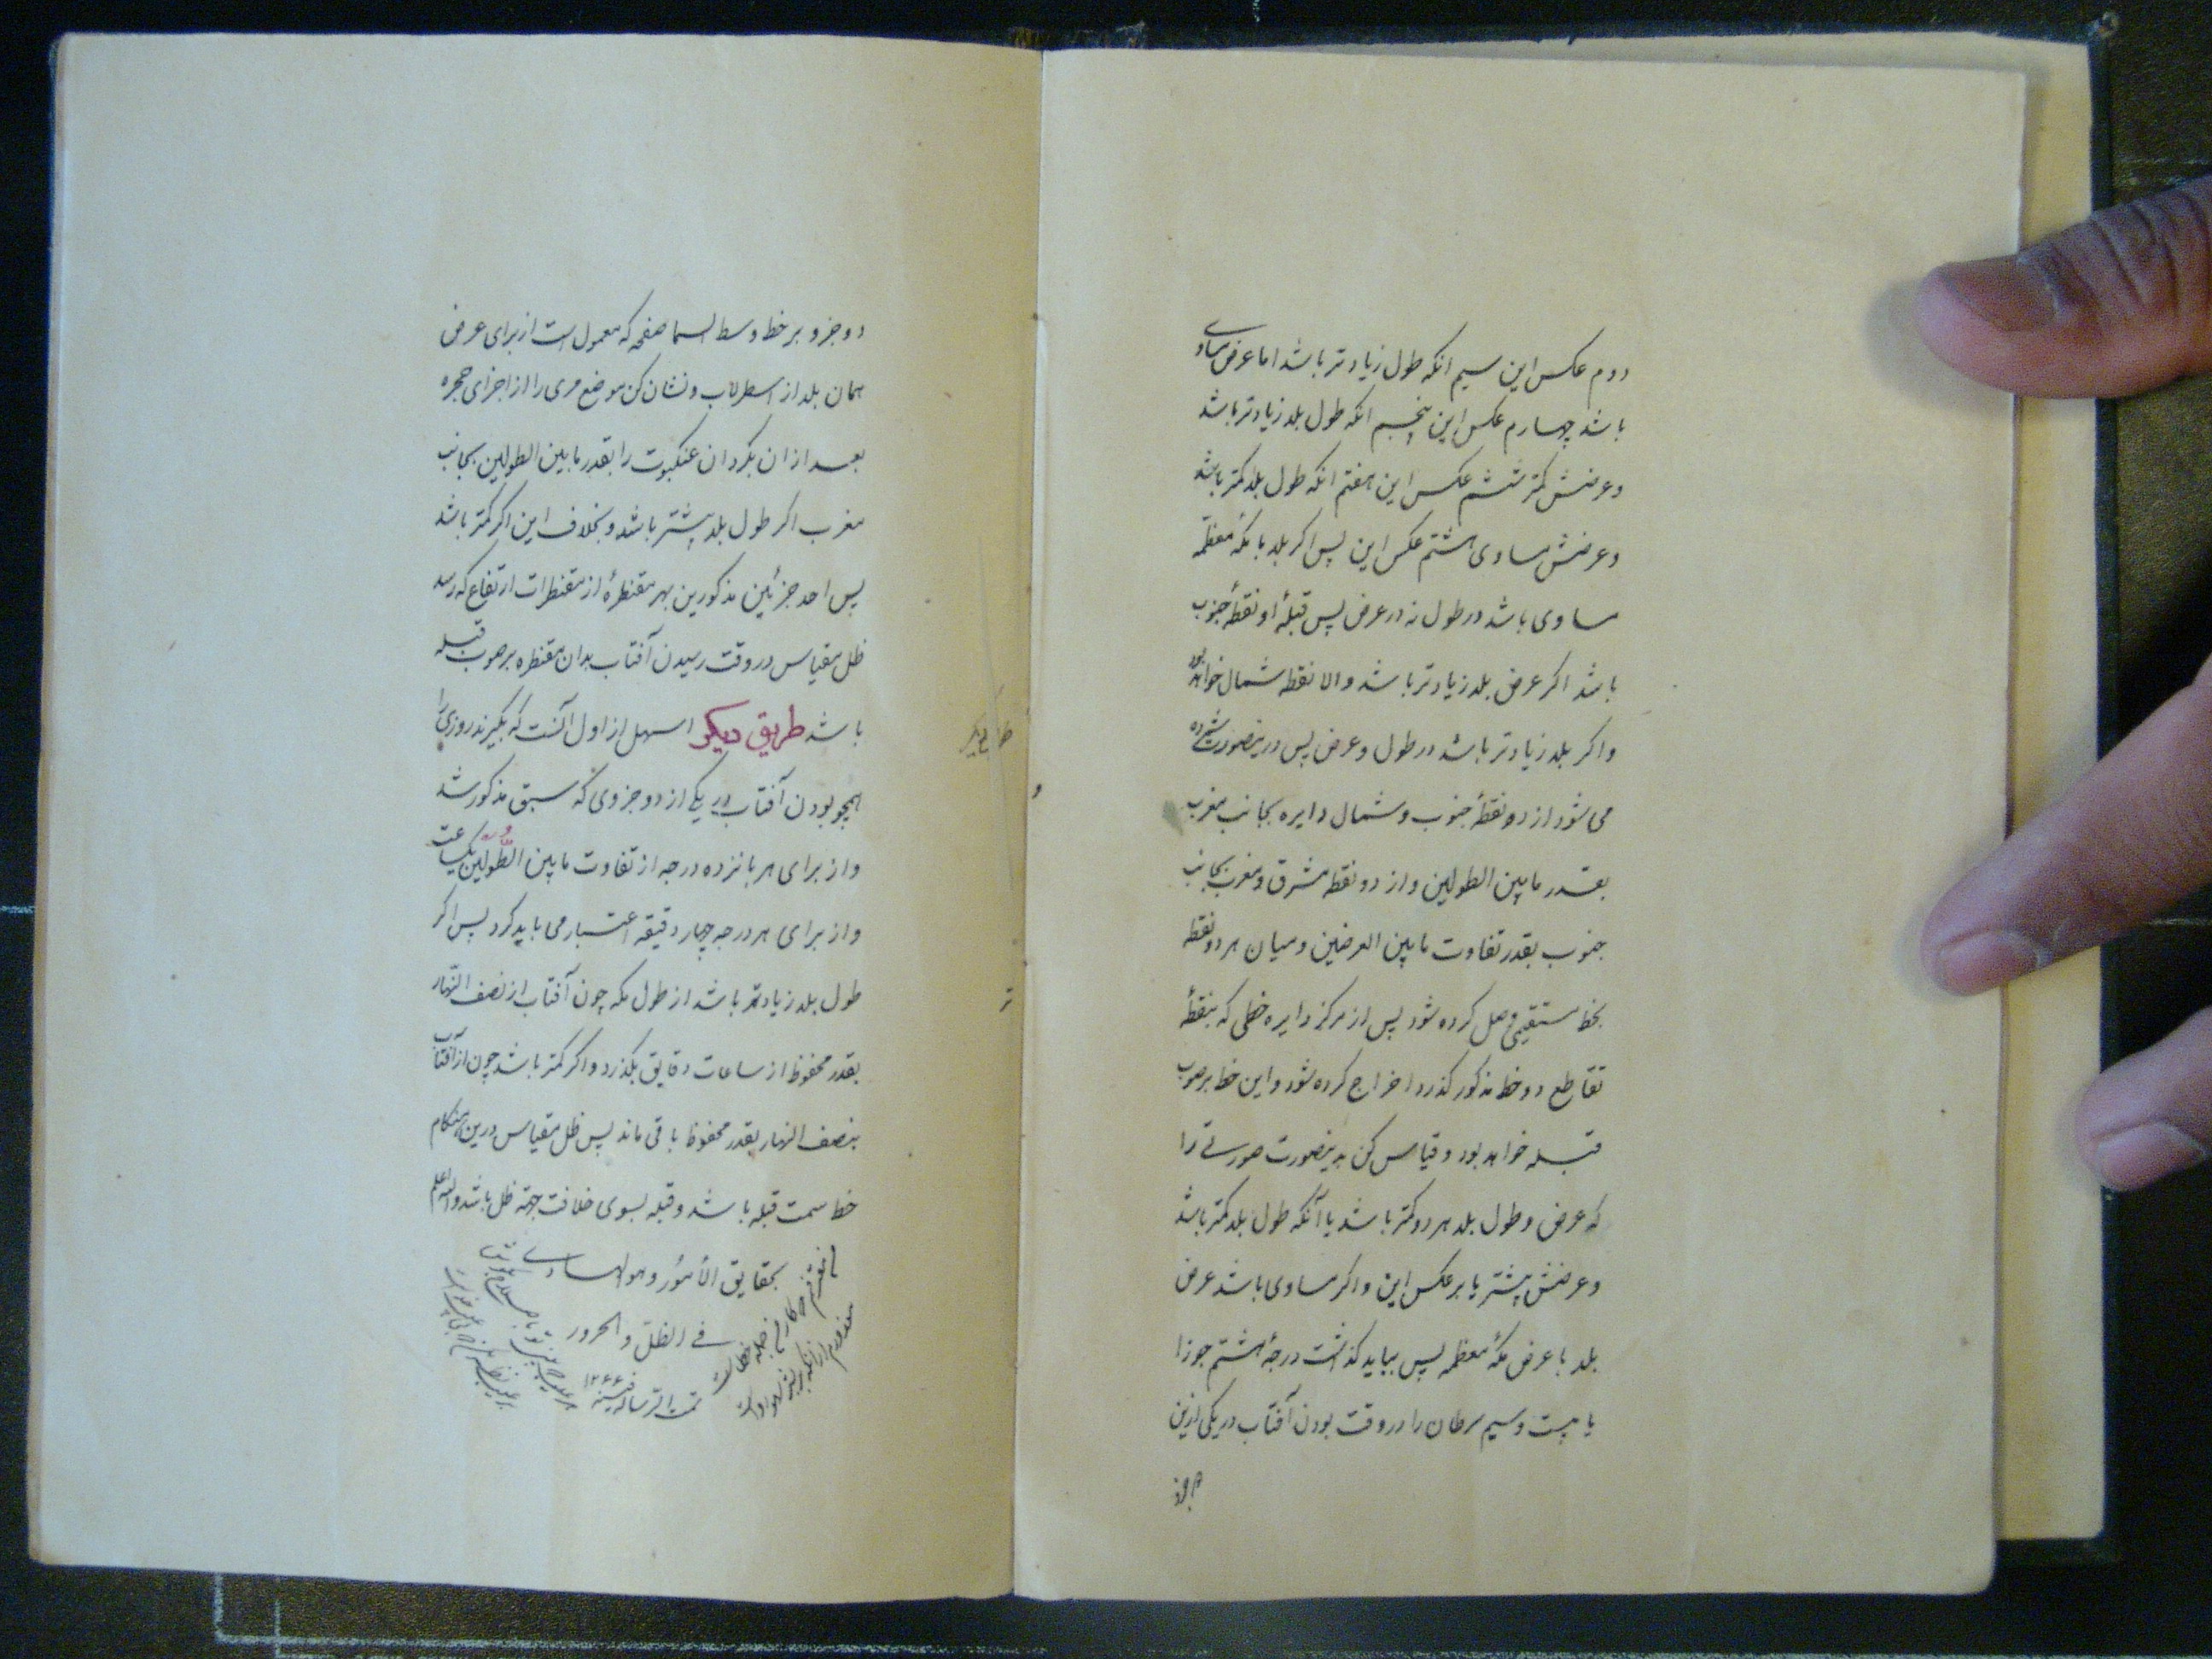 دوم عکس این سیم انکه طول زیادتر باشد اما عرض مساوی
باشد چهارم عکس این پنجم انکه طول بلد زیادتر باشد
و عرضش کمتر ششم عکس این هفتم انکه طول بلد کمتر باشد
و عرضش مساوی هشتم عکس این پس اکر بلد با مکهٔ معظمّه
مساوی باشد در طول نه در عرض پس قبلهٔ او نقطهٔ جنوب
باشد اکر عرض بلد زیادتر باشد والا نقطه شمال خواهد بود
واکر بلد زیادتر باشد در طول و عرض پس درینصورت شمرده
می شود از دو نقطهٔ جنوب و شمال دایره بجانب مغرب
بقدر مابین الطولین و از دو نقطه مشرق و مغرب بجانب
جنوب بقدر تفاوت مابین العرضین و میان هر دو نقطه
بخط مستقیمی وصل کرده شود پس از مرکز دایره خطی که بنقطهٔ
تقاطع دو خط مذکور کذرد اخراج کرده شود و این خط بر صوب
قبله خواهد بود و قیاس کن بدینصورت صورتی را
که عرض و طول بلد هر دو کمتر باشد یا آنکه طول بلد کمتر باشد
و عرضش پیشتر یا بر عکس این و اکر مساوی باشد عرض
بلد با عرض مکهٔ معظمه پس بباید کذاشت درجهٔ هشتم جوزا
یا بیست و سیم سرطان را در وقت بودن آفتاب در یکی ازین
دو جزو بر خط وسط السما صفحه که معمول است از برای عرض
همان بلد از اسطرلاب و نشان کن موضع مری را از اجزای حجره
بعد ازان بکردان عنکبوت را بقدر مابین الطولین بجانب
مغرب اکر طول بلد پیشتر باشد و بخلاف این اکر کمتر باشد
پس احد جزئین مذکورین بهر مقنطرهٔ از مقنطرات ارتفاع که رسد
ظل مقیاس در وقت رسیدن آفتاب بدان مقنطره بر صوب قبله
باشد طریق دیکر اسهل از اول آنست که بکیرند روزی را
همچو بودن آفتاب در یکی از دو جزوی که سبق مذکور شد
و از برای هر پانزده درجه از تفاوت مابین الطولین یکساعت
و از برای هر درجه چهار دقیقه اعتبار می باید کرد پس اکر
طول بلد زیادتر باشد از طول مکه چون آفتاب از نصف النهار
بقدر محفوظ از ساعات دقایق بکذرد و اکر کمتر باشد چون از آفتاب
بنصف النهار بقدر محفوظ باقی ماند پس ظل مقیاس درین هنکام
خط سمت قبله باشد و قبله بسوی خلاف جهة ظل باشد والله اعلم
بحقایق الأمور و هو الهادی
فی الظل والحرور
تمت الرساله فی سنه ۱۲۶۶